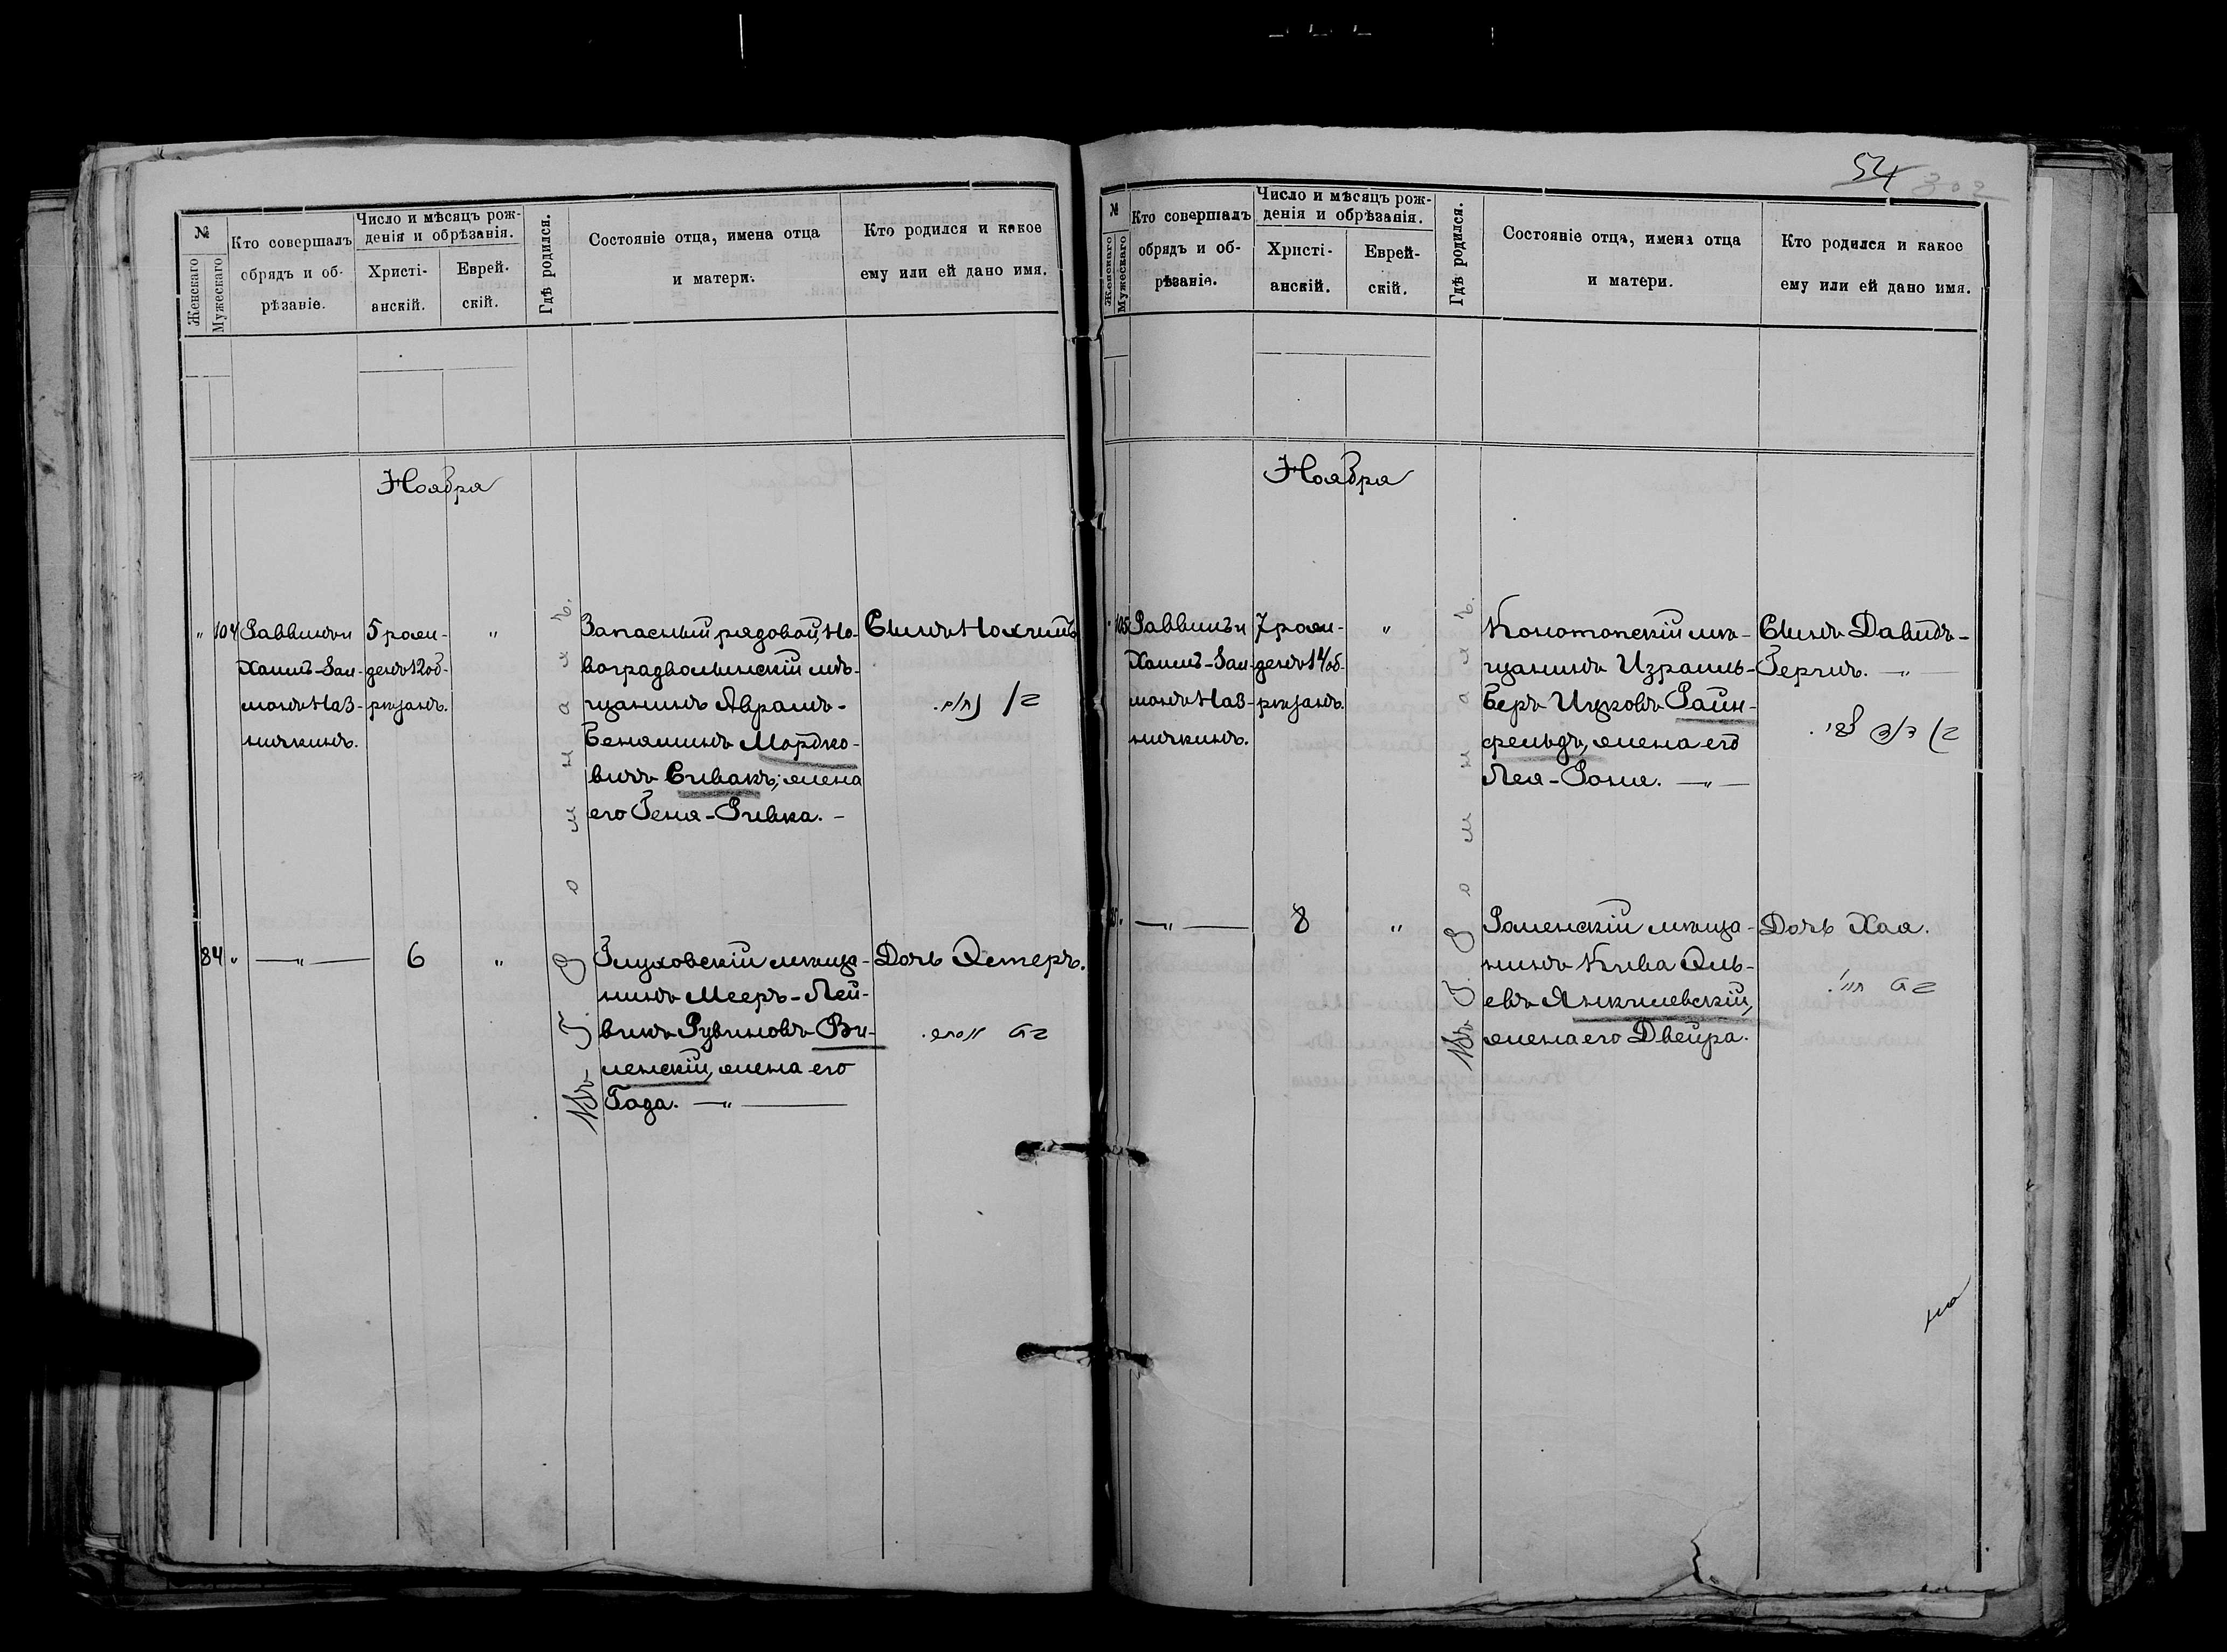 №
Женскаго
Мужескаго
Кто совершалъ
обрядъ и об-
рѣзаніе.
Число и мѣсяцъ рож-
денія и обрѣзанія.
Христі-
анскій.
Еврей-
скій.
Гдѣ родился.
Состояніе отца, имена отца
и матери.
Кто родился и какое
ему или ей дано имя.
Ноября
" 104
Раввинъ и
Хаимъ-Зал-
монъ Наз-
ничкинъ.
5 рож-
денъ 12 об-
рѣзанъ.
"
Запасный рядовой, Но-
воградволынскій мѣ-
щанинъ Аврамъ-
Беняминъ Мордко-
вичъ Спивакъ; жена
его Геня-Ривка. -
Сынъ Нохимъ
בן נחום.
84 "
— " —
6
"
Глуховскій мѣща-
нинъ Мееръ-Лей-
викъ Рувиновъ Ви-
ленскій, жена его
Года. — " —
Дочь Эстеръ.
בת אסתר.
Въ Г. Ромнахъ.
54
№
Женскаго
Мужескаго
Кто совершалъ
обрядъ и об-
рѣзаніе.
Число и мѣсяцъ рож-
денія и обрѣзанія.
Христі-
анскій.
Еврей-
скій.
Гдѣ родился.
Состояніе отца, имена отца
и матери.
Кто родился и какое
ему или ей дано имя.
Ноября
" 105
Раввинъ и
Хаимъ-Зал-
монъ Наз-
ничкинъ.
7 рож-
денъ 14 об-
рѣзанъ.
"
Конотопскій мѣ-
щанинъ Израиль-
Беръ Ицковъ Райн-
фельдъ, жена его
Лея-Роня. — " —
Сынъ Давидъ-
Герчъ. — " —
בן דוד צבי.
85 "
— " —
8
"
Роменскій мѣща-
нинъ Кива Эль-
евъ Янкилевскій,
жена его Двейра.
Дочь Хая.
בת חיי.
Въ Г. Ромнахъ.